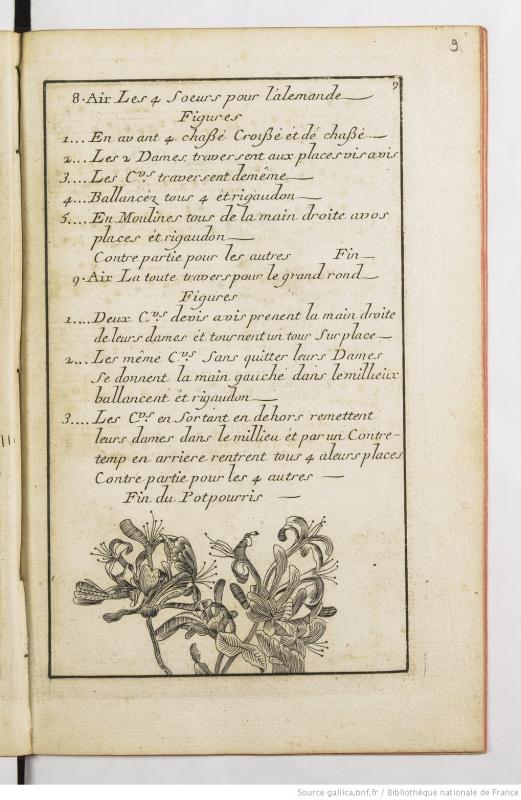 9.
9
8. Air Les 4 Soeurs pour l'alemande
Figures
1.... En avant 4 chaßé Croißé ét dé chaßé
2.... Les 2 Dames traversent aux places vis avis
3.... Les Cvs. traversent demême
4.... Ballancéz tous 4 ét rigaudon
5.... En Moulines tous de la main droite avos
places ét rigaudon
Contre partie pour les autres Fin
9. Air La toute travers pour le grand rond
Figures
1.... Deux Cvs. devis avis prenent la main droite
de leurs dames ét tournent un tour Sur place
2.... Les même Cvs. Sans quitter leurs Dames
Se donnent la main gauche dans le millieux
ballancent ét rigaudon
3.... Les Cvs. en Sortant en dehors remettent
leurs dames dans le millieu ét par un Contre-
temp en arriere rentrent tous 4 aleurs places
Contre partie pour les 4 autres
Fin du Potpourris
Source gallica.bnf.fr / Bibliothèque nationale de France